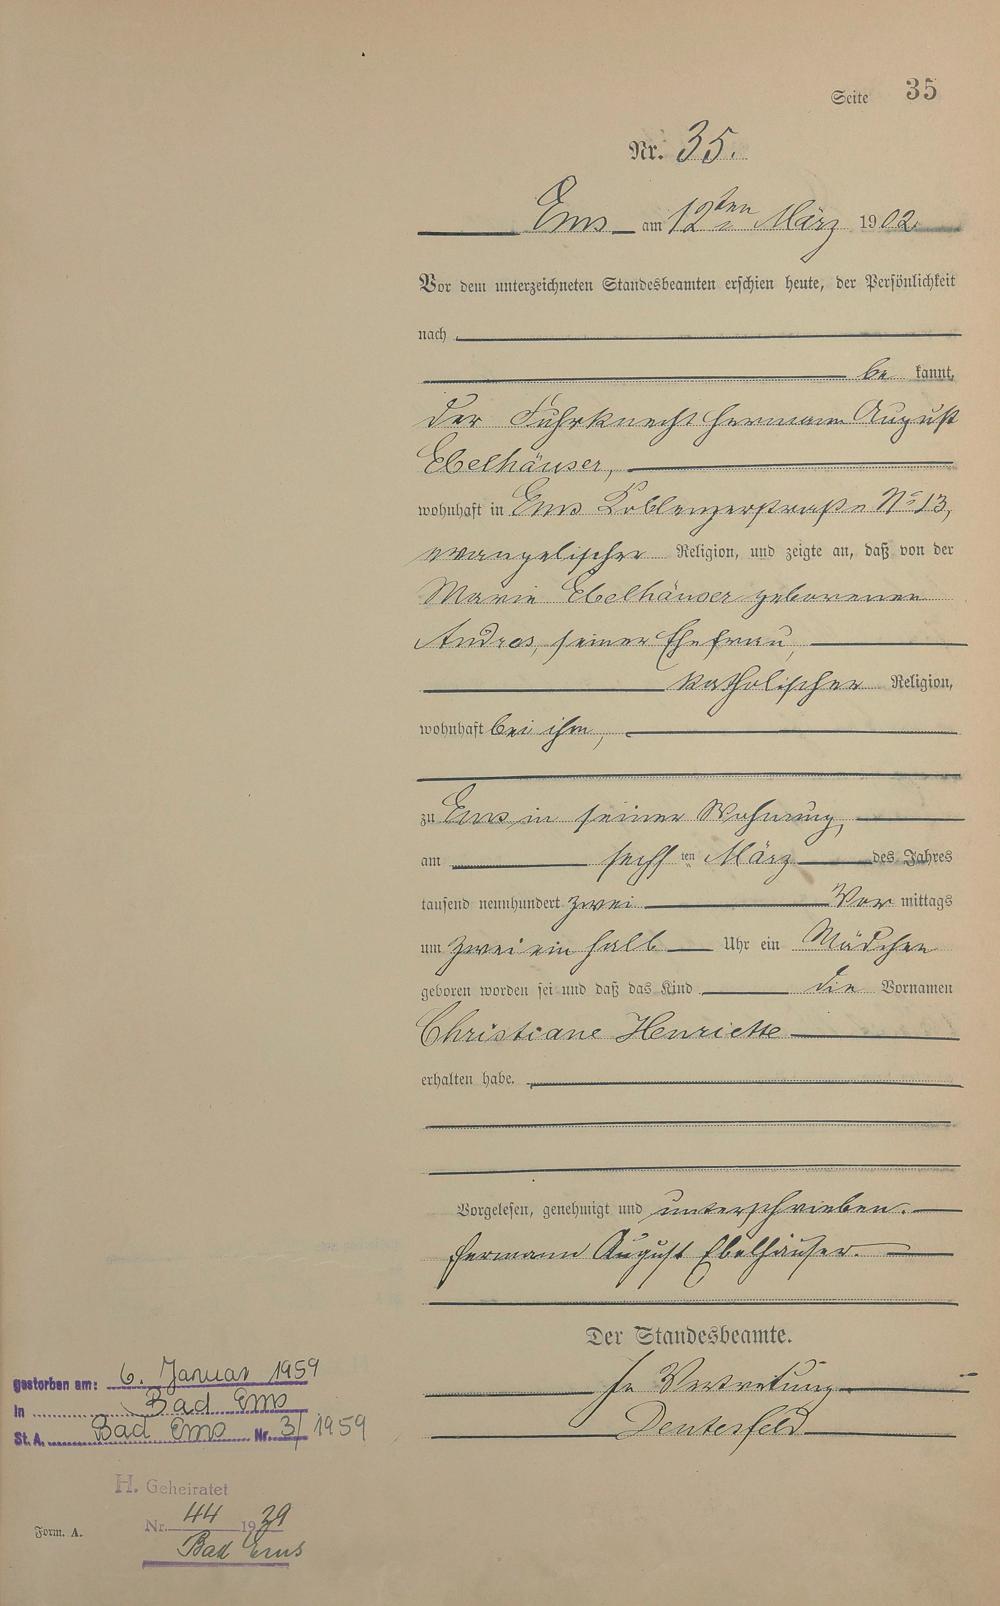 Seite 35
Nr. 35.
Ems am 12ten März 1902.
Vor dem unterzeichneten Standesbeamten erschien heute, der Persönlichkeit
nach
be kannt,
der Fuhrknecht Hermann August
Ebelhäuser,
wohnhaft in Ems Koblenzerstraße No 13,
evangelischer Religion, und zeigte an, daß von der
Marie Ebelhäuser geborenen
Andres, seiner Ehefrau,
katholischer Religion,
wohnhaft bei ihm,
zu Ems in seiner Wohnung,
am sechsten März des Jahres
tausend neunhundert zwei Vor mittags
um zwei ein halb Uhr ein Mädchen
geboren worden sei und daß das Kind die Vornamen
Christiane Henriette
erhalten habe.
Vorgelesen, genehmigt und unterschrieben.
Hermann August Ebelhäuser.
Der Standesbeamte.
In Vertretung
Deutesfeld
gestorben am: 6. Januar 1959
in Bad Ems
St. A. Bad Ems Nr. 3/1959
H. Geheiratet
Nr. 44 1939
Bad Ems
Form. A.